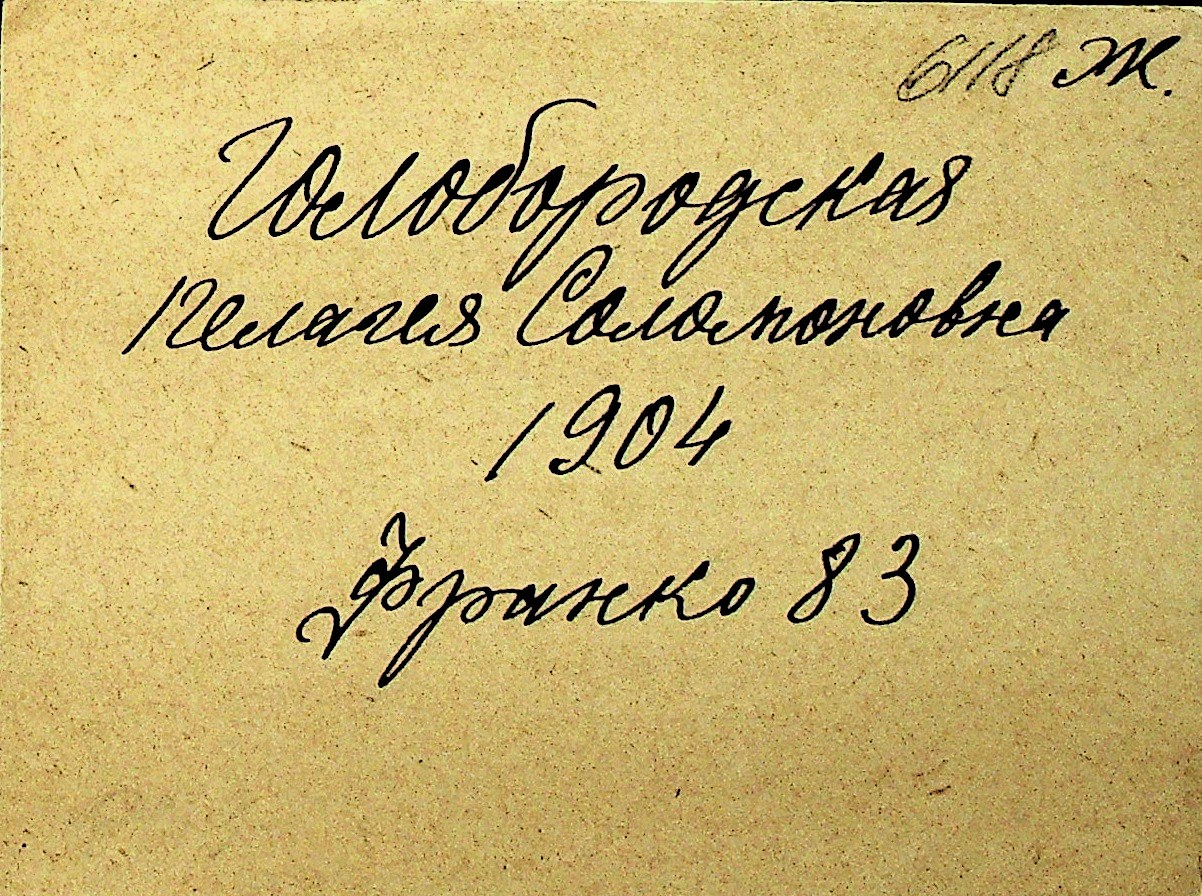 6118 Ж.
Голобородская
Пелагея Соломоновна
1904
Франко 83